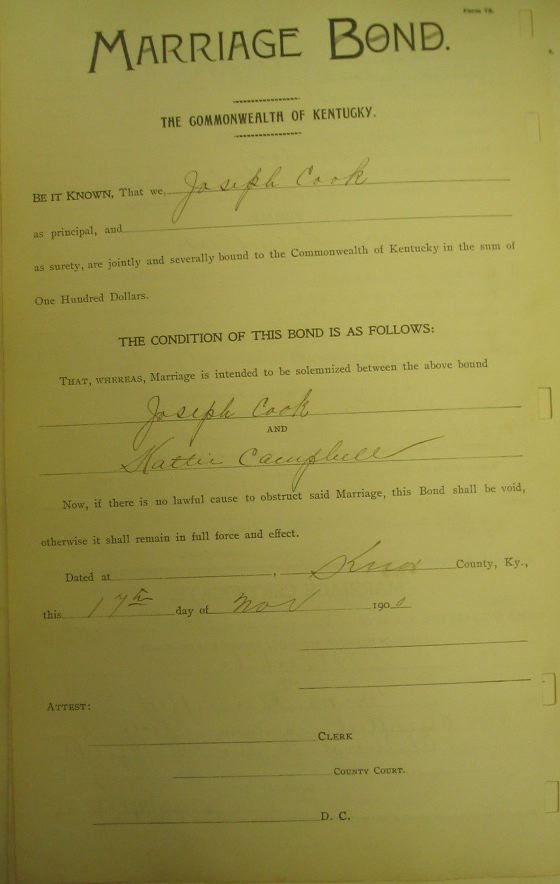 Form 78.
MARRIAGE BOND.
THE COMMONWEALTH OF KENTUCKY.
BE IT KNOWN, That we, Joseph Cook
as principal, and
as surety, are jointly and severally bound to the Commonwealth of Kentucky in the sum of
One Hundred Dollars.
THE CONDITION OF THIS BOND IS AS FOLLOWS:
THAT, WHEREAS, Marriage is intended to be solemnized between the above bound
Joseph Cook
AND
Hattie Campbell
Now, if there is no lawful cause to obstruct said Marriage, this Bond shall be void,
otherwise it shall remain in full force and effect.
Dated at , Knox County, Ky.,
this 17th day of Nov 1900
ATTEST:
CLERK
COUNTY COURT.
D. C.